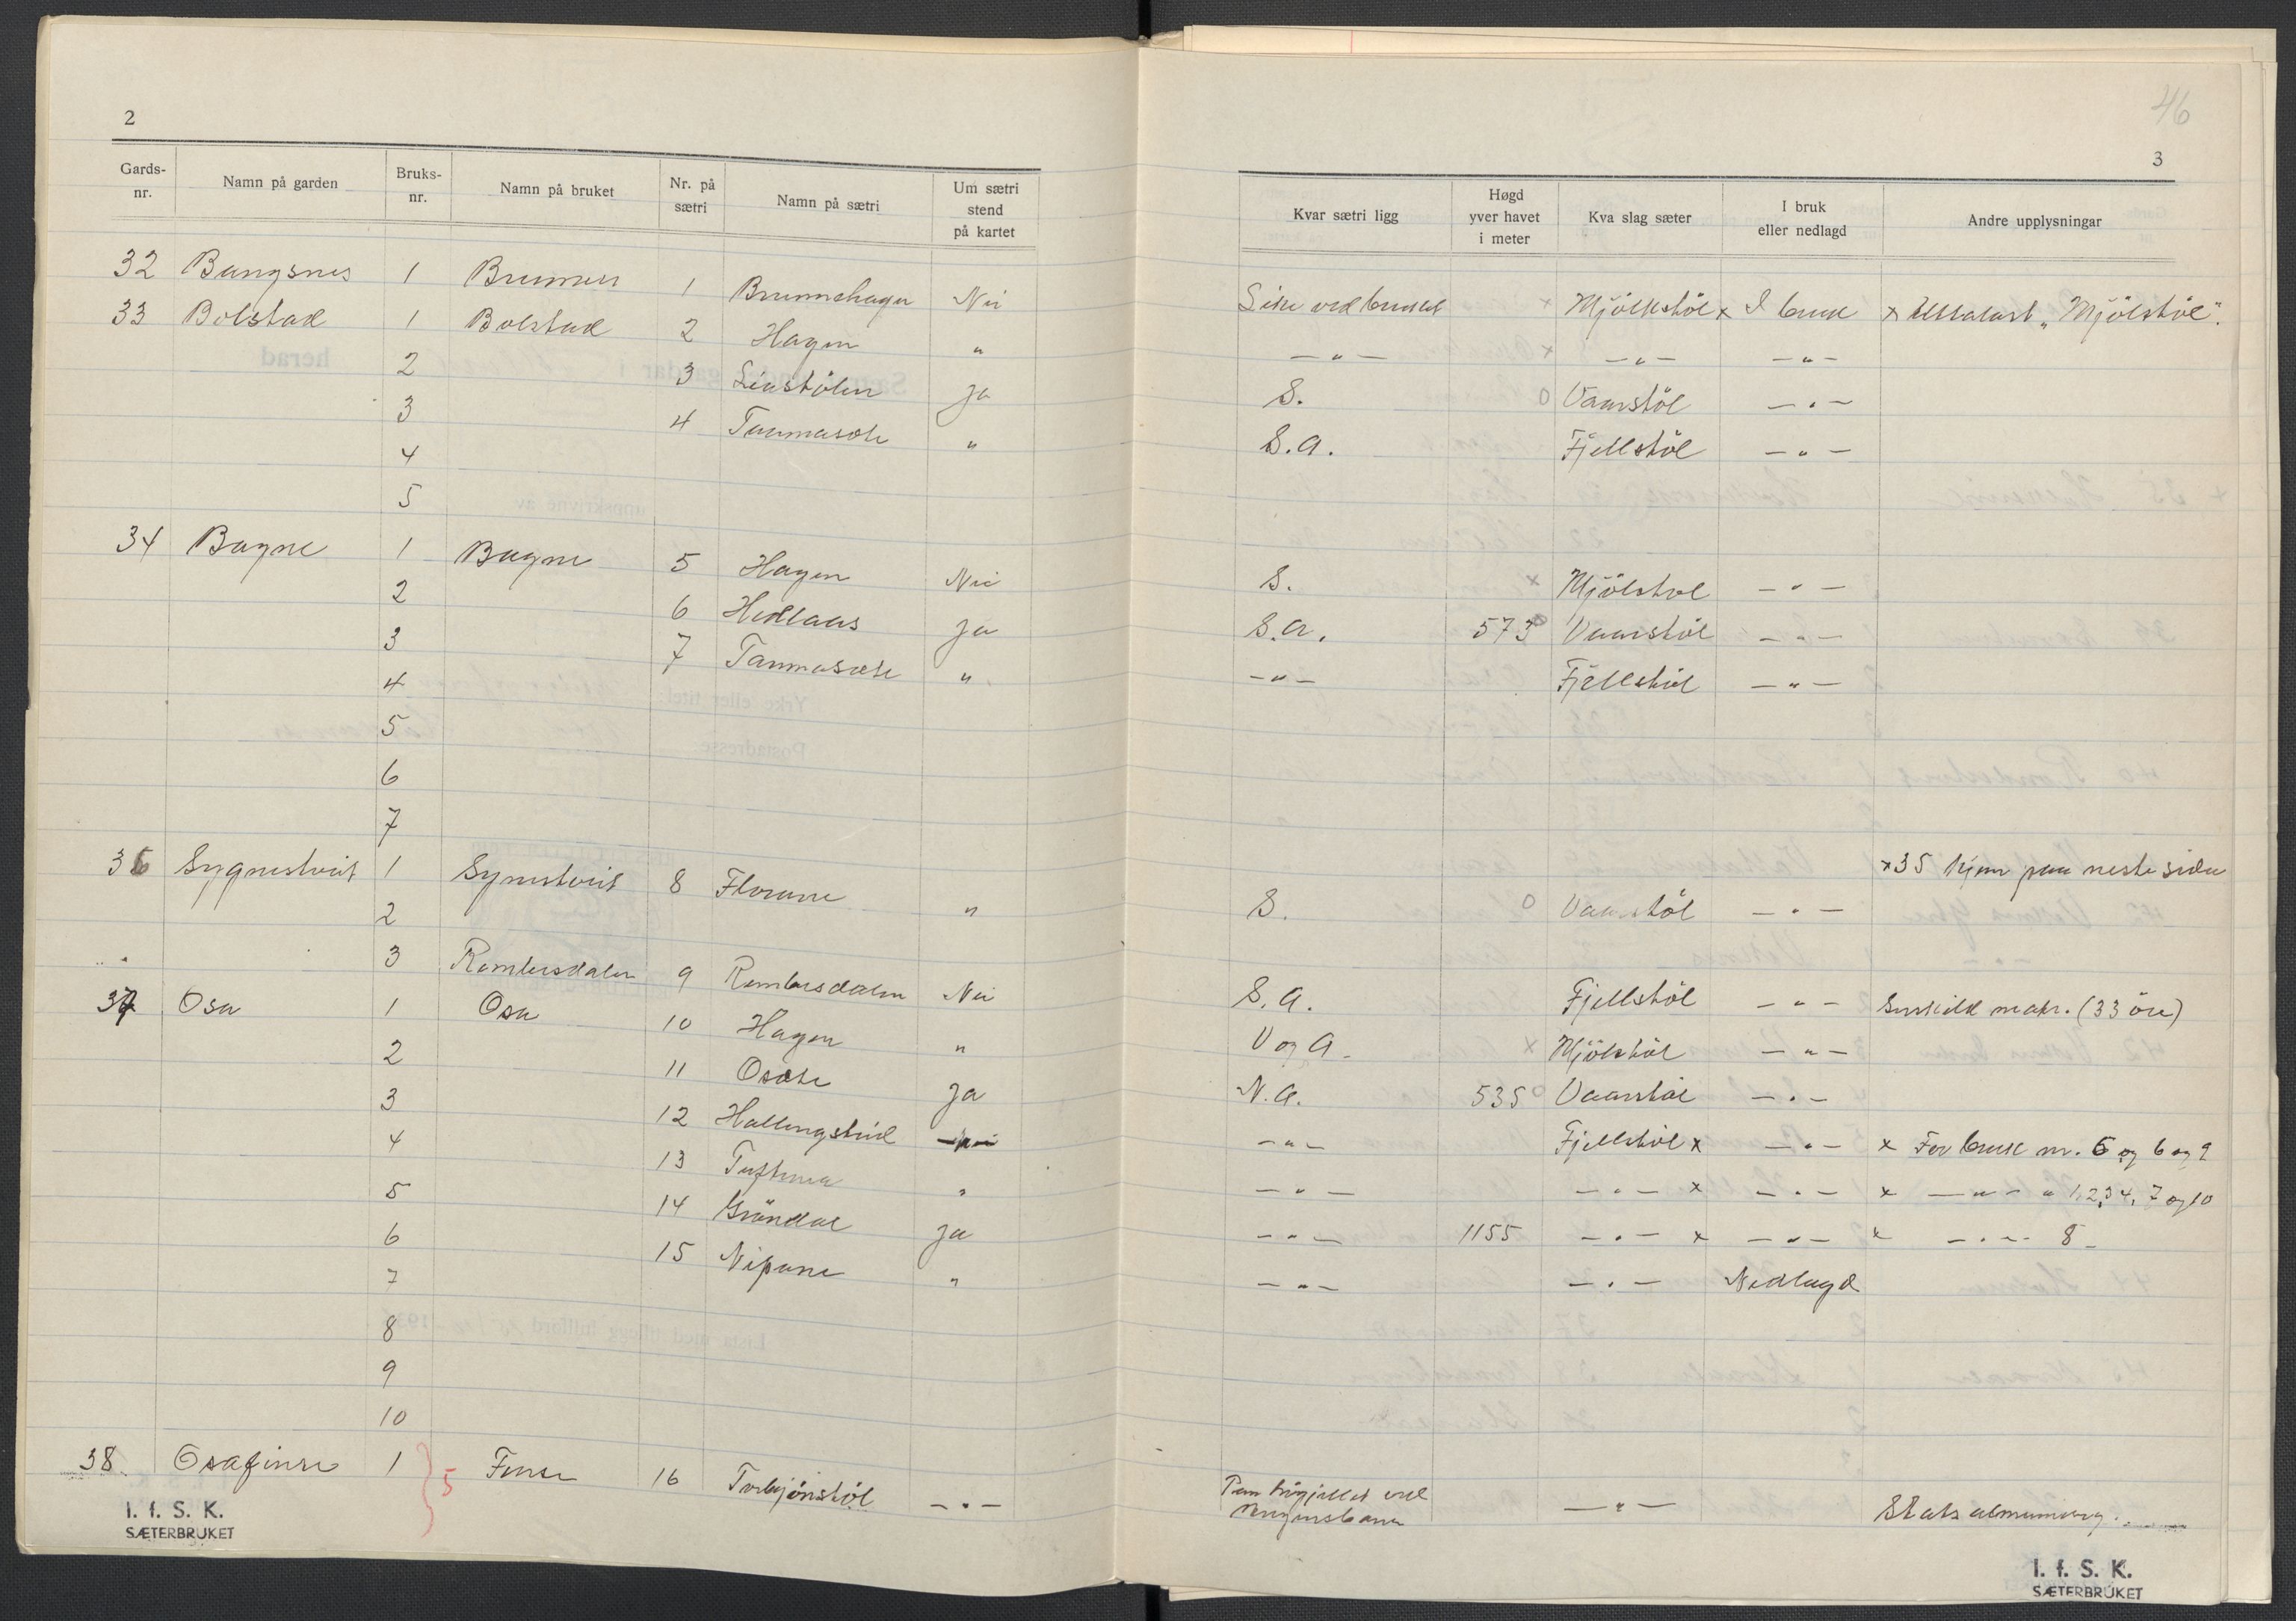 2
Gards-nr. Namn på garden Bruks-nr. Namn på bruket Nr. på sætri Namn på sætri Um sætri stend på kartet
32 Bangsnes 1 Brunnen 1 Brunnehagen Nei
33 Bolstad 1 Bolstad 2 Hagen "
2 3 Liastölen Ja
3 4 Taumasæte "
4
5
34 Bagne 1 Bagne 5 Hagen Nei
2 6 Hedlaas Ja
3 7 Taumasæte "
4
5
6
7
36 Sygnestveit 1 Synestveit 8 Florane "
2
3 Rembesdalen 9 Rembesdalen Nei
37 Osa 1 Osa 10 Hagen "
2 11 Osæte Ja
3 12 Hallingstöl
4 13 "
5 14 Gröndal Ja
6 15 Nipane "
7
8
9
10
38 Osafinse 1 5 Finse 16 Torbjönstöl — " —
I. f. S. K.
SÆTERBRUKET
46
3
Kvar sætri ligg Høgd yver havet i meter Kva slag sæter I bruk eller nedlagd Andre upplysningar
Like ved bruket x Mjölkstöl x I bruk x Uttalast „Mjölstöl".
— " — x — " — — " —
S. O Vaarstöl — " —
S.A. Fjellstöl — " —
S. x Mjölstöl — " —
S.A. 573 O Vaarstöl — " —
— " — Fjellstöl — " —
x 35 kjem paa neste sida
S. O Vaarstöl — " —
S.A. Fjellstöl — " — Serskild matr. (33 öre)
V og A. x Mjölstöl — " —
N.A. 535 O Vaarstöl — " —
— " — Fjellstöl x — " — x For bruk nr. 5 og 6 og 9
— " — — " — x — " — x — " — " 1, 2, 3, 4, 7 og 10
— " — 1155 — " — x — " — x — " — 8
— " — — " — Nedlagd
Paa högfjellet ved
Bergensbanen — " — Statsalmenning.
I. f. S. K.
SÆTERBRUKET